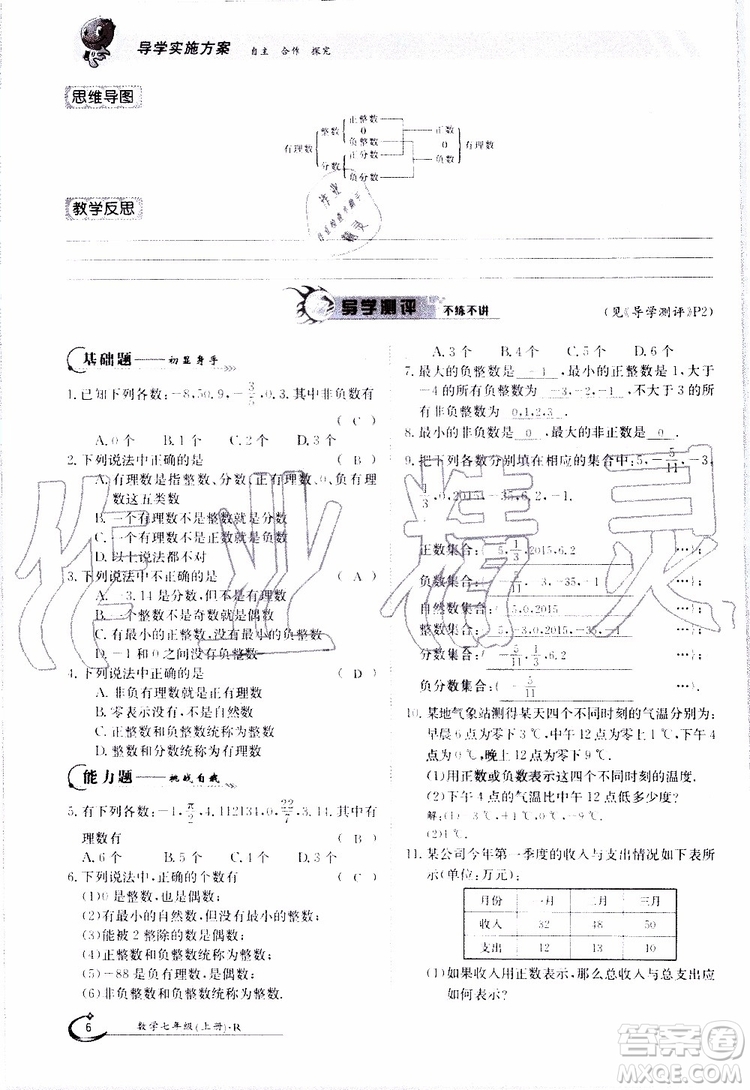 导学实施方案 自主 合作 探究
思维导图
有理数 整数 正整数 0 负整数 分数 正分数 负分数 正数 0 负数 有理数
教学反思
导学测评 不练不讲
(见《导学测评》P2)
基础题——初显身手
1.已知下列各数:-8,50,9,-3/5,0,3.其中非负数有
( C )
A.0个 B.2个 C.4个 D.3个
2.下列说法中正确的是 ( B )
A.有理数是指整数、分数、正有理数、0、负有理数这五类数
B.一个有理数不是整数就是分数
C.正整数和负整数统称为整数
D.以上说法都不对
3.下列说法中不正确的是 ( A )
A.-3.14是分数不是有理数
B.一个整数不是奇数就是偶数
C.有最小的正整数,没有最小的负整数
D.-1和0之间没有负整数
4.下列说法中正确的是 ( D )
A.非负有理数就是正有理数
B.零表示没有,不是自然数
C.正整数和负整数统称为整数
D.整数和分数统称为有理数
能力题——挑战自我
5.有下列各数:-1,π/2,4.112134,0,22/7,3.14.其中有
理数有 ( B )
A.6个 B.5个 C.4个 D.3个
6.下列说法中,正确的个数有 ( C )
(1)0是整数,也是偶数;
(2)有最小的自然数,但没有最小的整数;
(3)能被2整除的数是偶数;
(4)正整数和负整数统称为整数;
(5)-88是负有理数;
(6)非负整数和负分数统称为有理数.
A.3个 B.4个 C.5个 D.6个
7.最大的负整数是 -1 ,最小的正整数是 1 ,大于
-4的所有负整数为 -3,-2,-1 ,不大于3的所有
非负整数为 0,1,2,3 .
8.最小的非负数是 0 ,最大的非正数是 0 .
9.把下列各数分别填在相应的集合中:5,-5/11,-3,
1/3,0,2015,-35,6.2,-1.
正数集合:{ 5,1/3,2015,6.2 …};
负数集合:{ -5/11,-3,-35,-1 …};
自然数集合:{ 5,0,2015 …};
整数集合:{ 5,-3,0,2015,-35,-1 …};
分数集合:{ -5/11,1/3,6.2 …};
负分数集合:{ -5/11 …}.
10.某地气象站测得某天四个不同时刻的气温分别为:
早晨6点为零下3℃,中午12点为零上1℃,下午4点
为0℃,晚上12点为零下9℃.
(1)用正数或负数表示这四个不同时刻的温度.
(2)下午4点的气温比中午12点低多少度?
解:(1)-3℃,1℃,0℃,-9℃.
(2)1℃.
11.某公司今年第一季度的收入与支出情况如下表所
示(单位:万元):
月份 一月 二月 三月
收入 32 48 50
支出 12 13 10
(1)如果收入用正数表示,那么总收入与总支出应
如何表示?
6 数学七年级(上册)·R
作业精灵